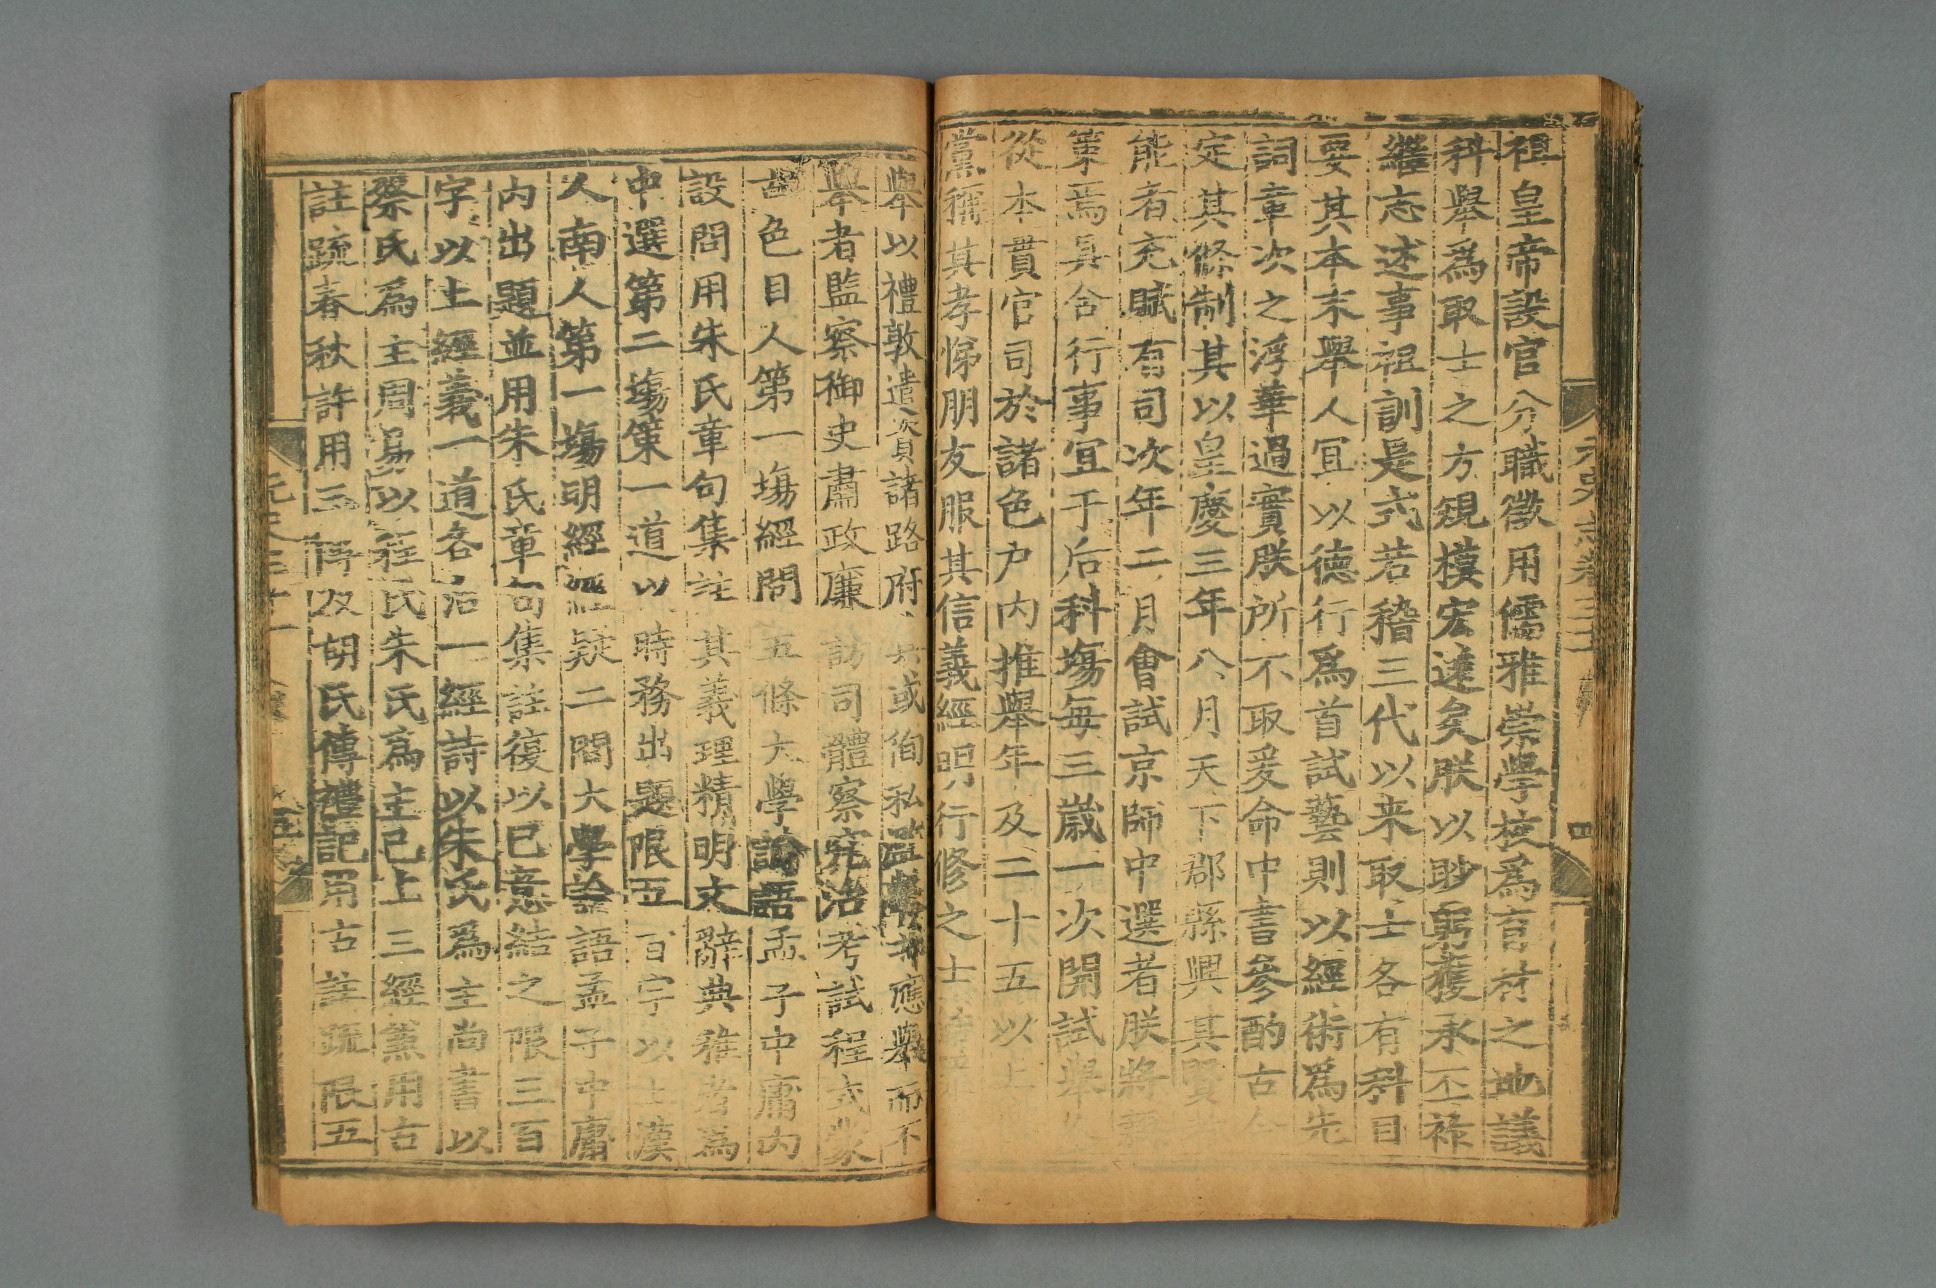 元史志卷三十一
四
祖皇帝設官分職徵用儒雅崇學校為育材之地議
科舉為取士之方規模宏遠矣朕以眇躬獲承丕祚
繼志述事祖訓是式若稽三代以來取士各有科目
要其本末舉人宜以德行為首試藝則以經術為先
詞章次之浮華過實朕所不取爰命中書參酌古今
定其條制其以皇慶三年八月天下郡縣興其賢者
能者充賦有司次年二月會試京師中選者朕將親
策焉具合行事宜于后科場每三歲一次開試舉人
從本貫官司於諸色户內推舉年及二十五以上
黨稱其孝悌朋友服其信義經明行修之士
舉以禮敦遣資諸路府其或徇私濫舉并應舉而不
舉者監察御史肅政廉訪司體察究治考試程式蒙
古色目人第一場經問五條大學論語孟子中庸內
設問用朱氏章句集註其義理精明文辭典雅者為
中選第二場策一道以時務出題限五百字以上漢
人南人第一場明經經疑二問大學論語孟子中庸
內出題並用朱氏章句集註復以己意結之限三百
字以上經義一道各治一經詩以朱氏為主尚書以
蔡氏為主周易以程氏朱氏為主已上三經兼用古
註疏春秋許用三傳及胡氏傳禮記用古註疏限五
元史三十一
五